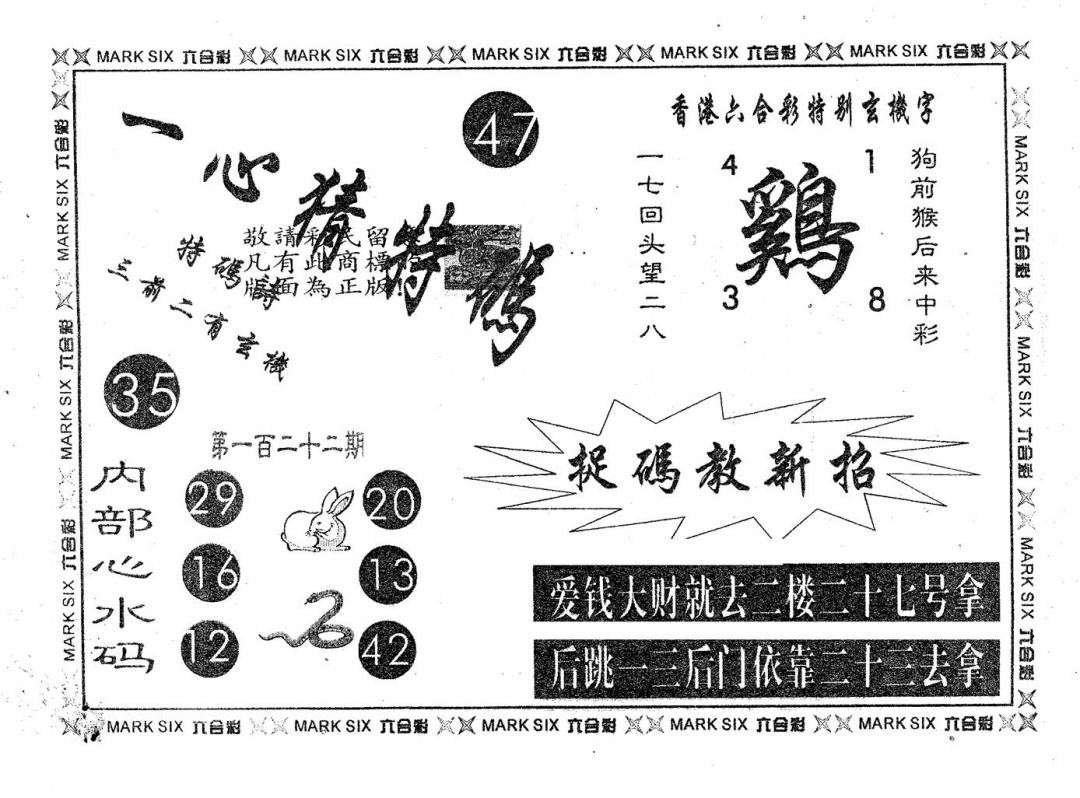 MARK SIX 六合彩 MARK SIX 六合彩 MARK SIX 六合彩 MARK SIX 六合彩 MARK SIX 六合彩
MARK SIX 六合彩 MARK SIX 六合彩 MARK SIX 六合彩
一心猜特碼
47
敬請彩民留
凡有此商標
版面為正版!
特碼詩
三前二有玄機
35
香港六合彩特别玄機字
一七回头望二八
4
1
鷄
3
8
狗前猴后来中彩
第一百二十二期
内部心水码
29
20
16
13
12
42
捉碼教新招
爱钱大财就去二楼二十七号拿
后跳一三后门依靠二十三去拿
MARK SIX 六合彩 MARK SIX 六合彩 MARK SIX 六合彩
MARK SIX 六合彩 MARK SIX 六合彩 MARK SIX 六合彩 MARK SIX 六合彩 MARK SIX 六合彩